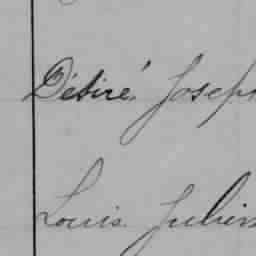 Désiré Joseph
Louis Julien